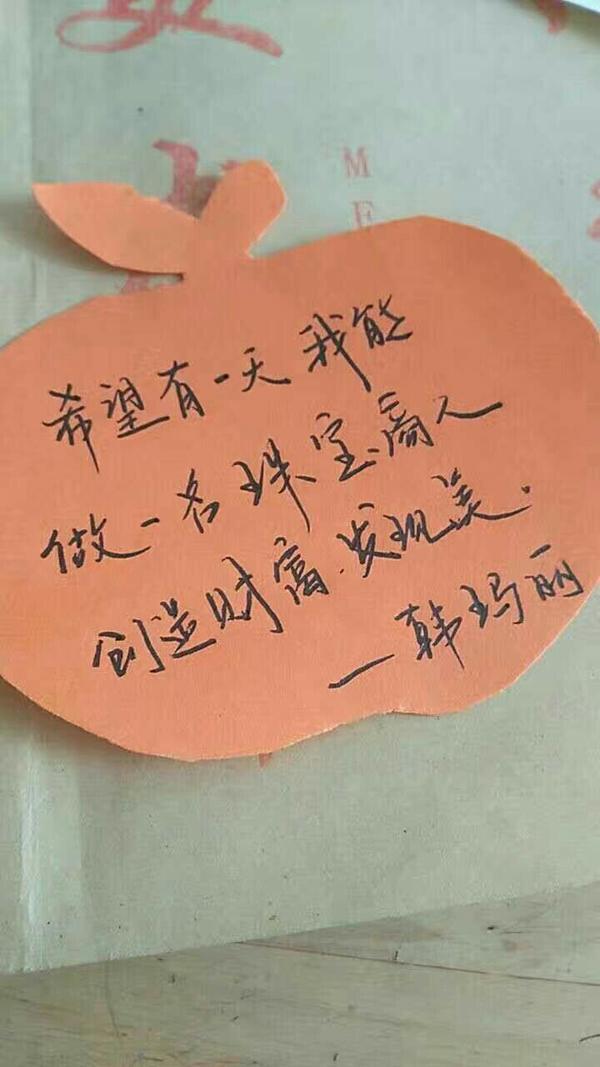 M
E
希望有一天我能
做一名珠宝商人
创造财富、发现美.
—韩玛丽